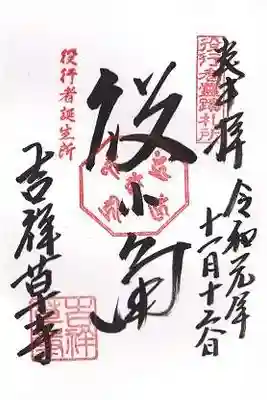 役行者霊蹟札所
奉拝
令和元年
十一月十六日
役小角
役行者誕生所
吉祥草寺
吉祥草寺